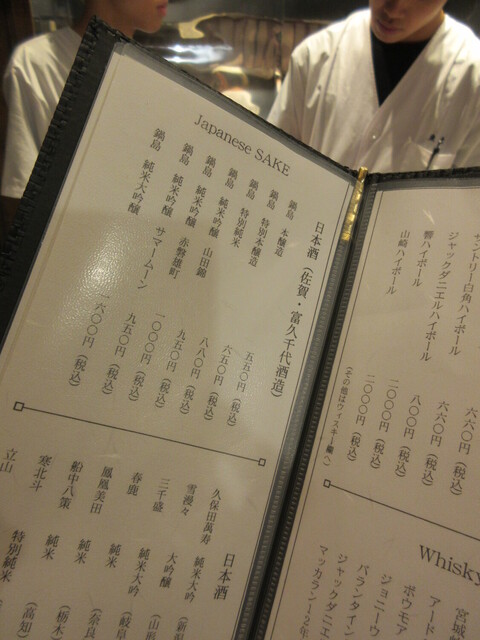 Japanese SAKE
日本酒(佐賀・富久千代酒造)
鍋島 本醸造 五五〇円(税込)
鍋島 特別本醸造 六五〇円(税込)
鍋島 特別純米 八八〇円(税込)
鍋島 純米吟醸 山田錦 九五〇円(税込)
鍋島 純米吟醸 赤磐雄町 一〇〇〇円(税込)
鍋島 純米吟醸 サマームーン 九五〇円(税込)
鍋島 純米大吟醸 一六〇〇円(税込)
日本酒
久保田萬寿 純米大吟
雪漫々 大吟醸 (山形
三千盛 純米大吟 (岐阜
春鹿 純米 (奈良
鳳凰美田 純米 (栃木
船中八策 純米 (高知)
寒北斗 特別純米
立山
六六〇円(税込)
サントリー白角ハイボール 六六〇円(税込)
ジャックダニエルハイボール 八〇〇円(税込)
響ハイボール 二〇〇〇円(税込)
山崎ハイボール 二〇〇〇円(税込)
(その他はウィスキー欄へ)
Whisky
宮城
アード
ボウモア
ジョニーウ
バランタイン
ジャックダニエ
マッカラン12年